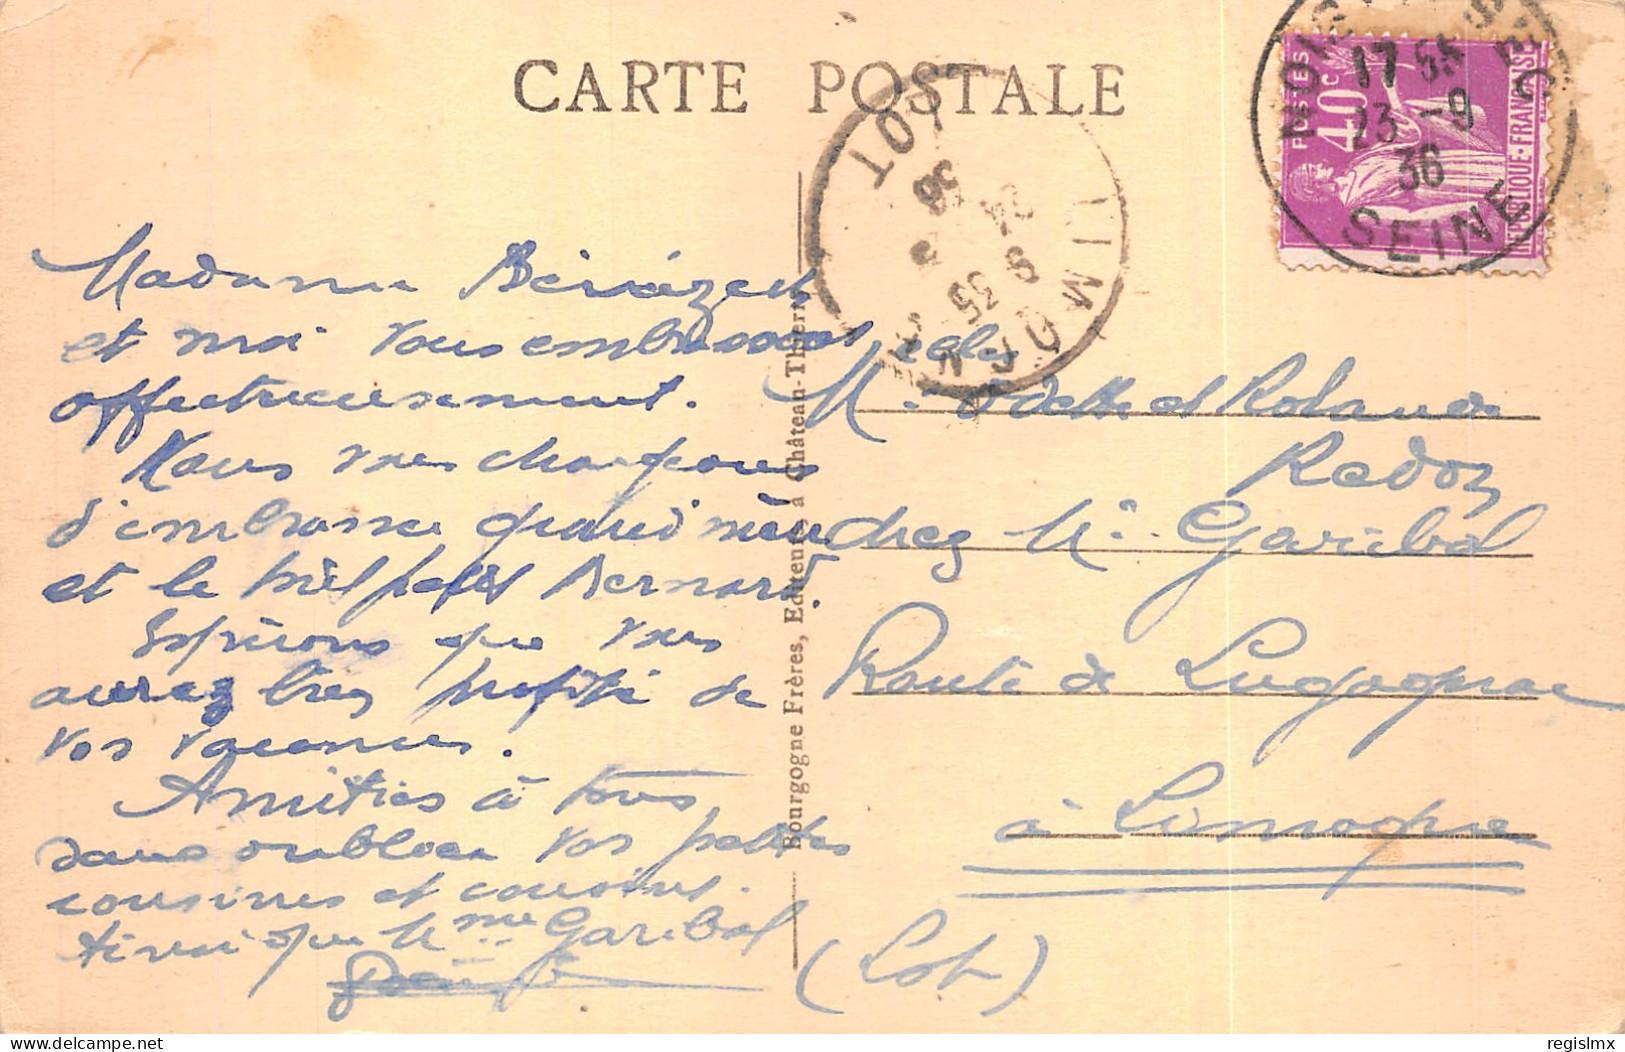 CARTE POSTALE
Madame
et moi vous embrassons, mes
affectueusement.
Nous vous chargeons
d'embrasser grand'mère
et le petit Bernard.
Espérons que vous
aurez très profité de
vos vacances.
Amitiés à tous,
sans oublier vos petites
cousines et cousins.
ainsi que Mme Garibal
Bourgogne Frères, Editeurs à Château-Thierry
M. Odette et Rolande
Redon
chez Mr. Garibal
Route de Lugagnac
à Limogne
(Lot)
LIMOGNE
LOT
24
9
35
36
17
23 -9
36
SEINE
POSTES
40c
REPUBLIQUE·FRANÇAISE
regislmx